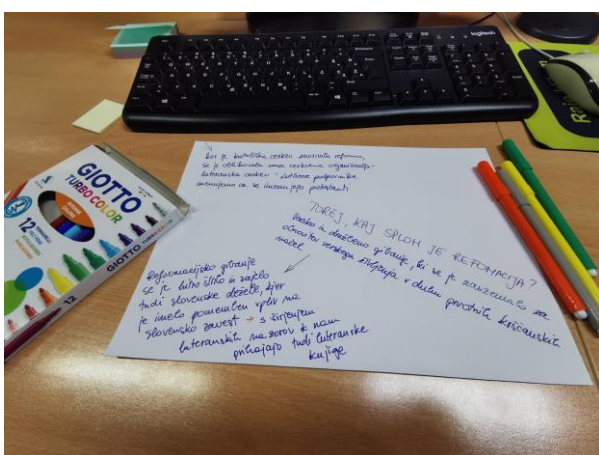 logitech
Ker je katoliška cerkev zavrnila reformo,
se je oblikovala nova cerkvena organizacija -
luteranska cerkev - Lutrove podpornike
imenujemo se imenujejo protestanti
TOREJ, KAJ SPLOH JE REFOMACIJA?
Versko in družbeno gibanje, ki se je zavzemalo za
obnovitev verskega življenja v duhu prvotnih krščanskih
načel
Reformacijsko gibanje
se je hitro širilo in zajelo
tudi slovenske dežele, kjer
je imelo pomemben vpliv na
slovensko zavest → s širjenjem
luteranskih nazorov k nam
prihajajo tudi luteranske
knjige
GIOTTO
TURBO COLOR
12
GIOTTO TURBO COLOR
12